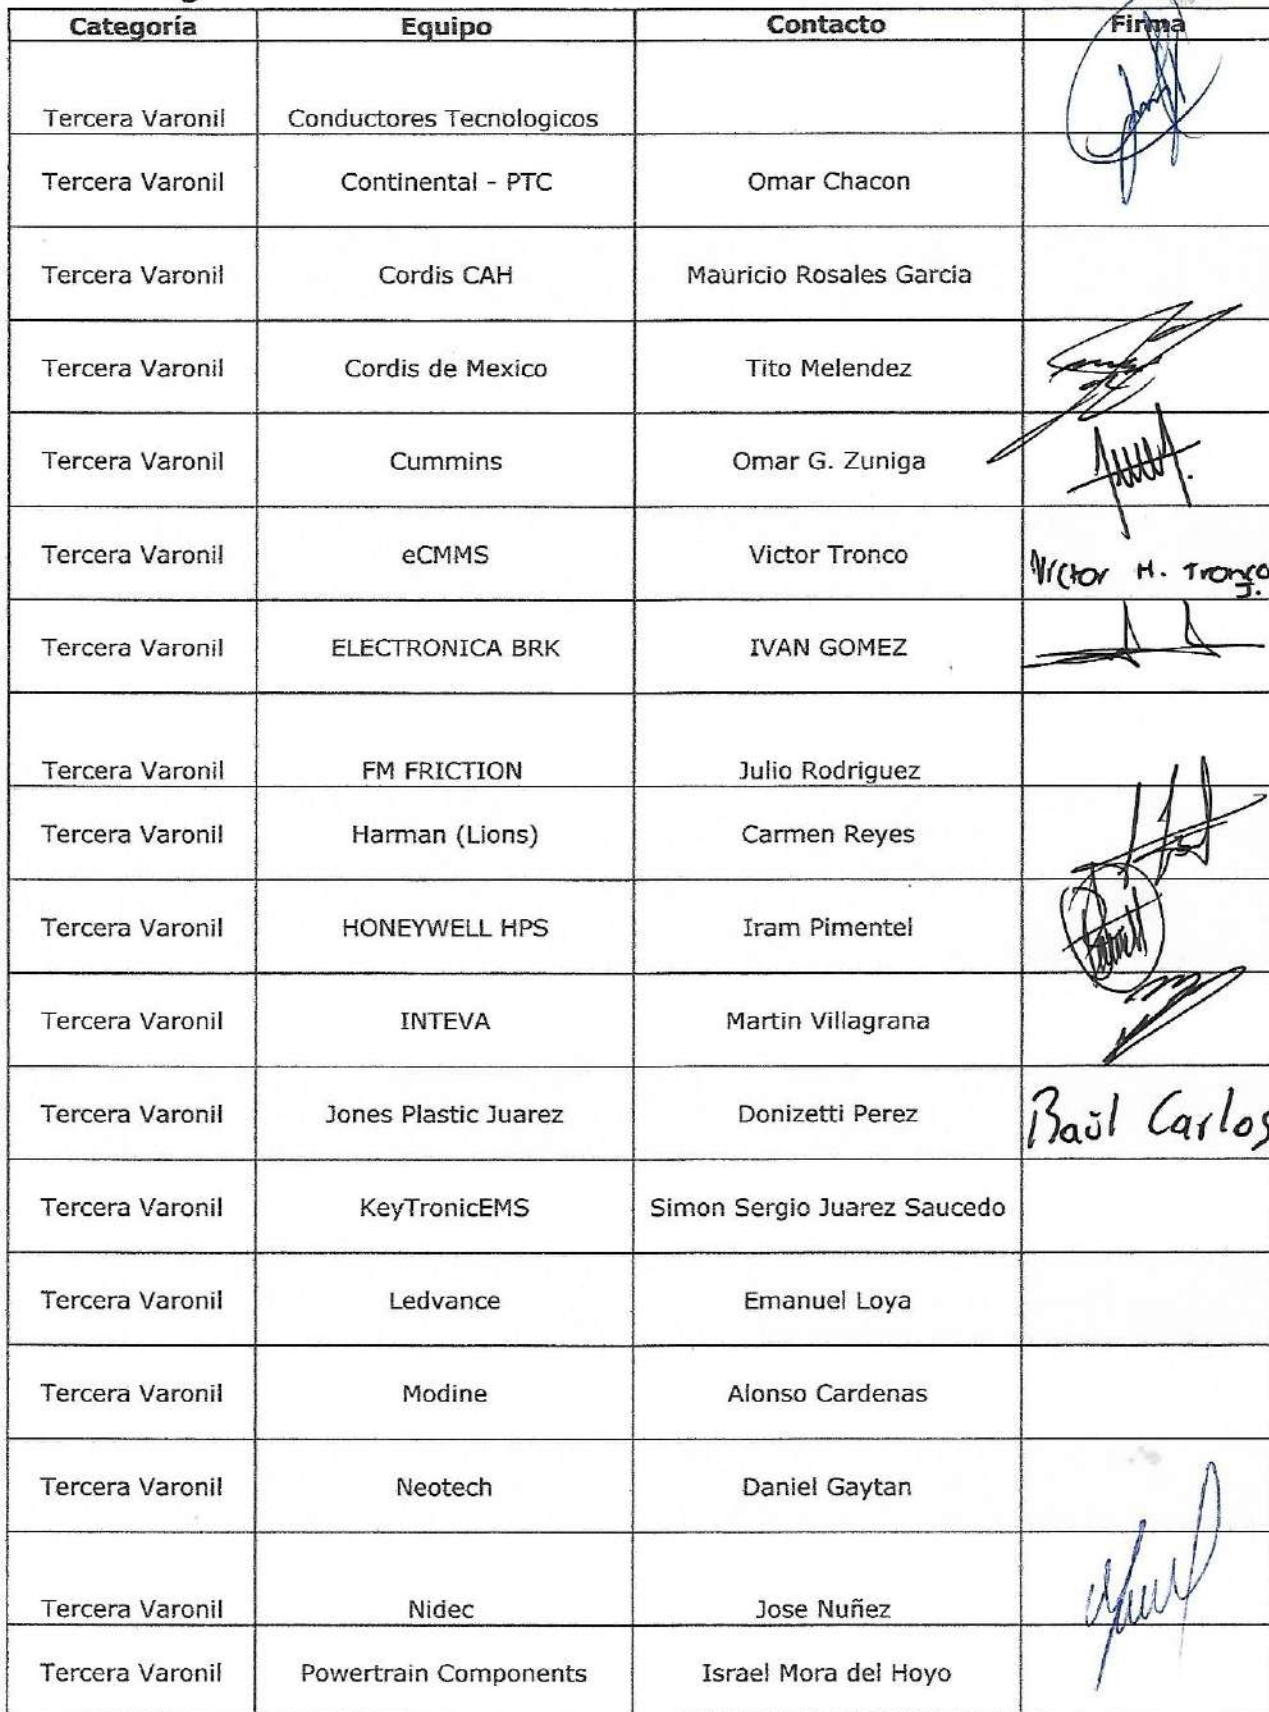 Categoría Equipo Contacto Firma
Tercera Varonil Conductores Tecnologicos
Tercera Varonil Continental - PTC Omar Chacon
Tercera Varonil Cordis CAH Mauricio Rosales Garcia
Tercera Varonil Cordis de Mexico Tito Melendez
Tercera Varonil Cummins Omar G. Zuniga
Tercera Varonil eCMMS Victor Tronco Victor H. Tronco J.
Tercera Varonil ELECTRONICA BRK IVAN GOMEZ
Tercera Varonil FM FRICTION Julio Rodriguez
Tercera Varonil Harman (Lions) Carmen Reyes
Tercera Varonil HONEYWELL HPS Iram Pimentel
Tercera Varonil INTEVA Martin Villagrana
Tercera Varonil Jones Plastic Juarez Donizetti Perez Raúl Carlos
Tercera Varonil KeyTronicEMS Simon Sergio Juarez Saucedo
Tercera Varonil Ledvance Emanuel Loya
Tercera Varonil Modine Alonso Cardenas
Tercera Varonil Neotech Daniel Gaytan
Tercera Varonil Nidec Jose Nuñez
Tercera Varonil Powertrain Components Israel Mora del Hoyo